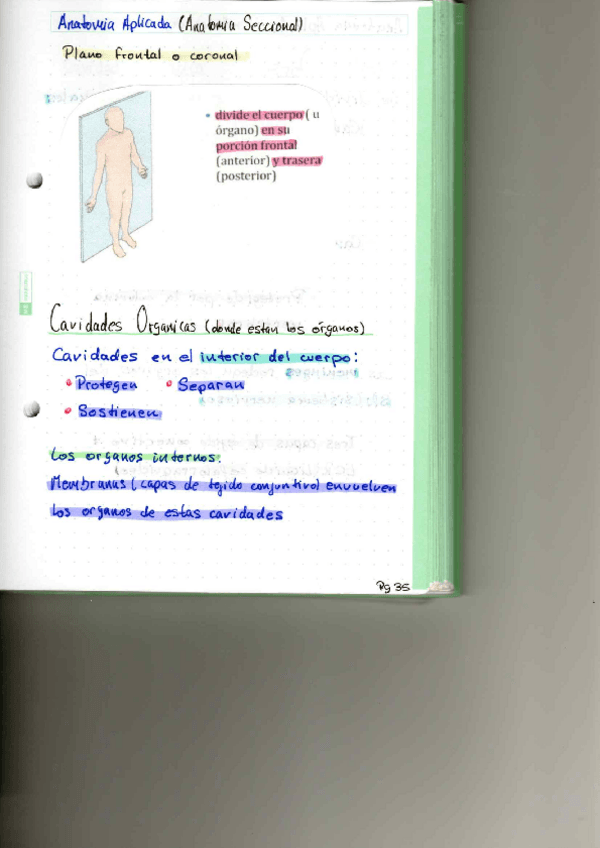 Anatomia Aplicada (Anatomia Seccional)
Plano frontal o coronal
• divide el cuerpo ( u
órgano) en su
porción frontal
(anterior) y trasera
(posterior)
Cavidades Organicas (donde estan los órganos)
Cavidades en el interior del cuerpo:
• Protegen • Separan
• Sostienen
Los organos internos.
Membranas (capas de tejido conjuntivo) envuelven
los organos de estas cavidades
Pg 35